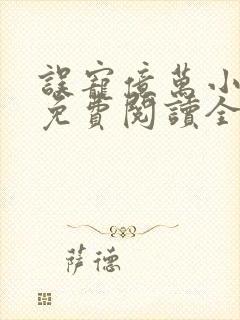 誤寵億萬小
免費閱讀全
薩德